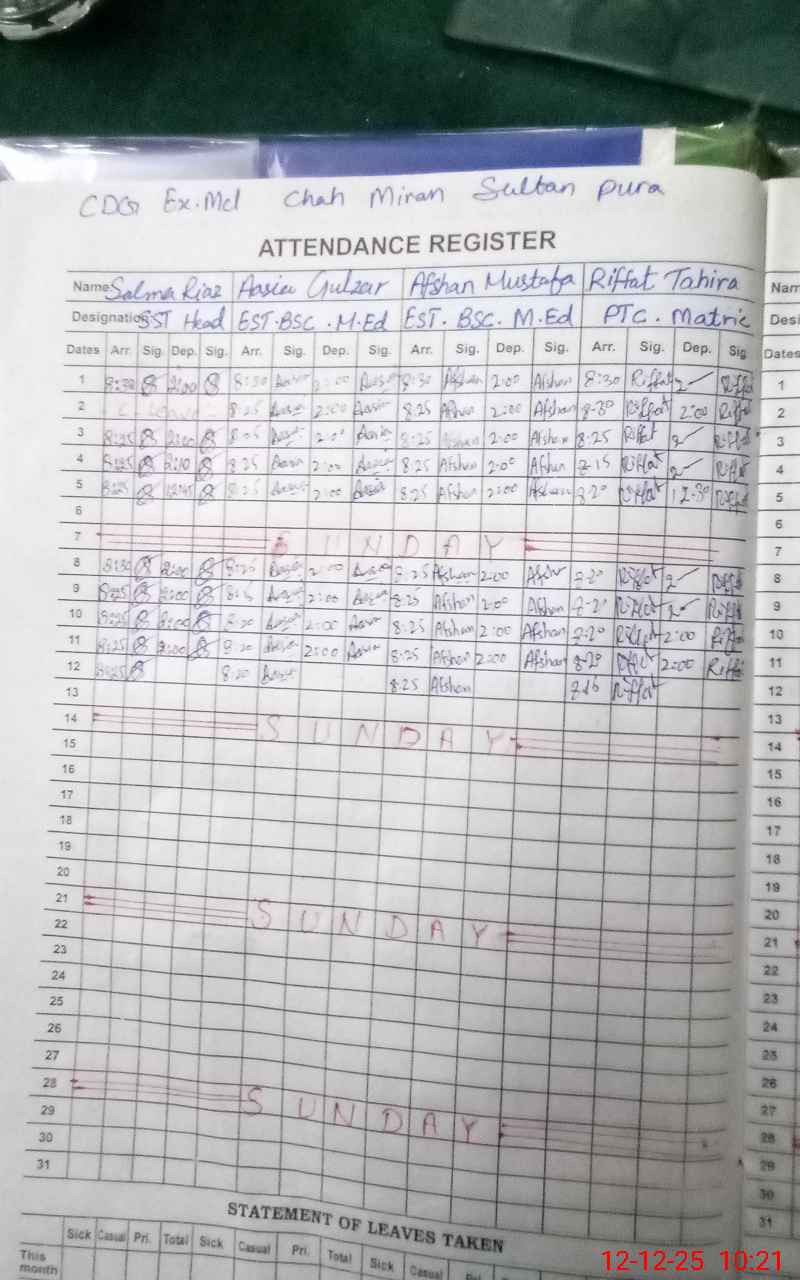 CDG Ex.Mcl Chah Miran Sultan Pura
ATTENDANCE REGISTER
Name Salma Riaz Aasia Gulzar Afshan Mustafa Riffat Tahira
Designation SST Head EST.BSC.M.Ed EST. BSC. M.Ed PTC. Matric
Dates Arr. Sig. Dep. Sig. Arr. Sig. Dep. Sig. Arr. Sig. Dep. Sig. Arr. Sig. Dep. Sig
1 8:30 2:00 8:30 Aasia 2:00 Aasia 8:30 Afshan 2:00 Afshan 8:30 Riffat 2 Riffat
2 8:25 Aasia 2:00 Aasia 8.25 Afshan 2:00 Afshan Riffat 2:00 Riffat
3 8:25 2:00 Aasia Aasia 8:25 Afshan 2:00 Afshan 8:25 Riffat 2 Riffat
4 8:25 2:10 8:25 Aasia 2:00 Aasia 8.25 Afshan 2:00 Afshan Riffat 2 Riffat
5 8:25 8:25 Aasia 2:00 Aasia 8:25 Afshan 2:00 Afshan Riffat 12-30 Riffat
6
7 SUNDAY
8 8:30 2:00 8:25 Aasia 2:00 Aasia 8:25 Afshan 2:00 Afshan Riffat 2 Riffat
9 8:25 2:00 Aasia 2:00 Aasia 8:25 Afshan 2:00 Afshan Riffat 2 Riffat
10 8:25 2:00 8:20 Aasia 2:00 Aasia 8:25 Afshan 2:00 Afshan Riffat 2:00 Riffat
11 8:25 2:00 8:20 Aasia 2:00 Aasia 8:25 Afshan 2:00 Afshan 8-20 Riffat 2:00 Riffat
12 8:25 8:20 Aasia 8.25 Afshan Riffat
13
14 SUNDAY
15
16
17
18
19
20
21 SUNDAY
22
23
24
25
26
27
28 SUNDAY
29
30
31
STATEMENT OF LEAVES TAKEN
Sick Casual Pri. Total Sick Casual Pri. Total Sick Casual Pri.
This month
Nam
Desi
Dates
1
2
3
4
5
6
7
8
9
10
11
12
13
14
15
16
17
18
19
20
21
22
23
24
25
26
27
28
29
30
31
12-12-25 10:21